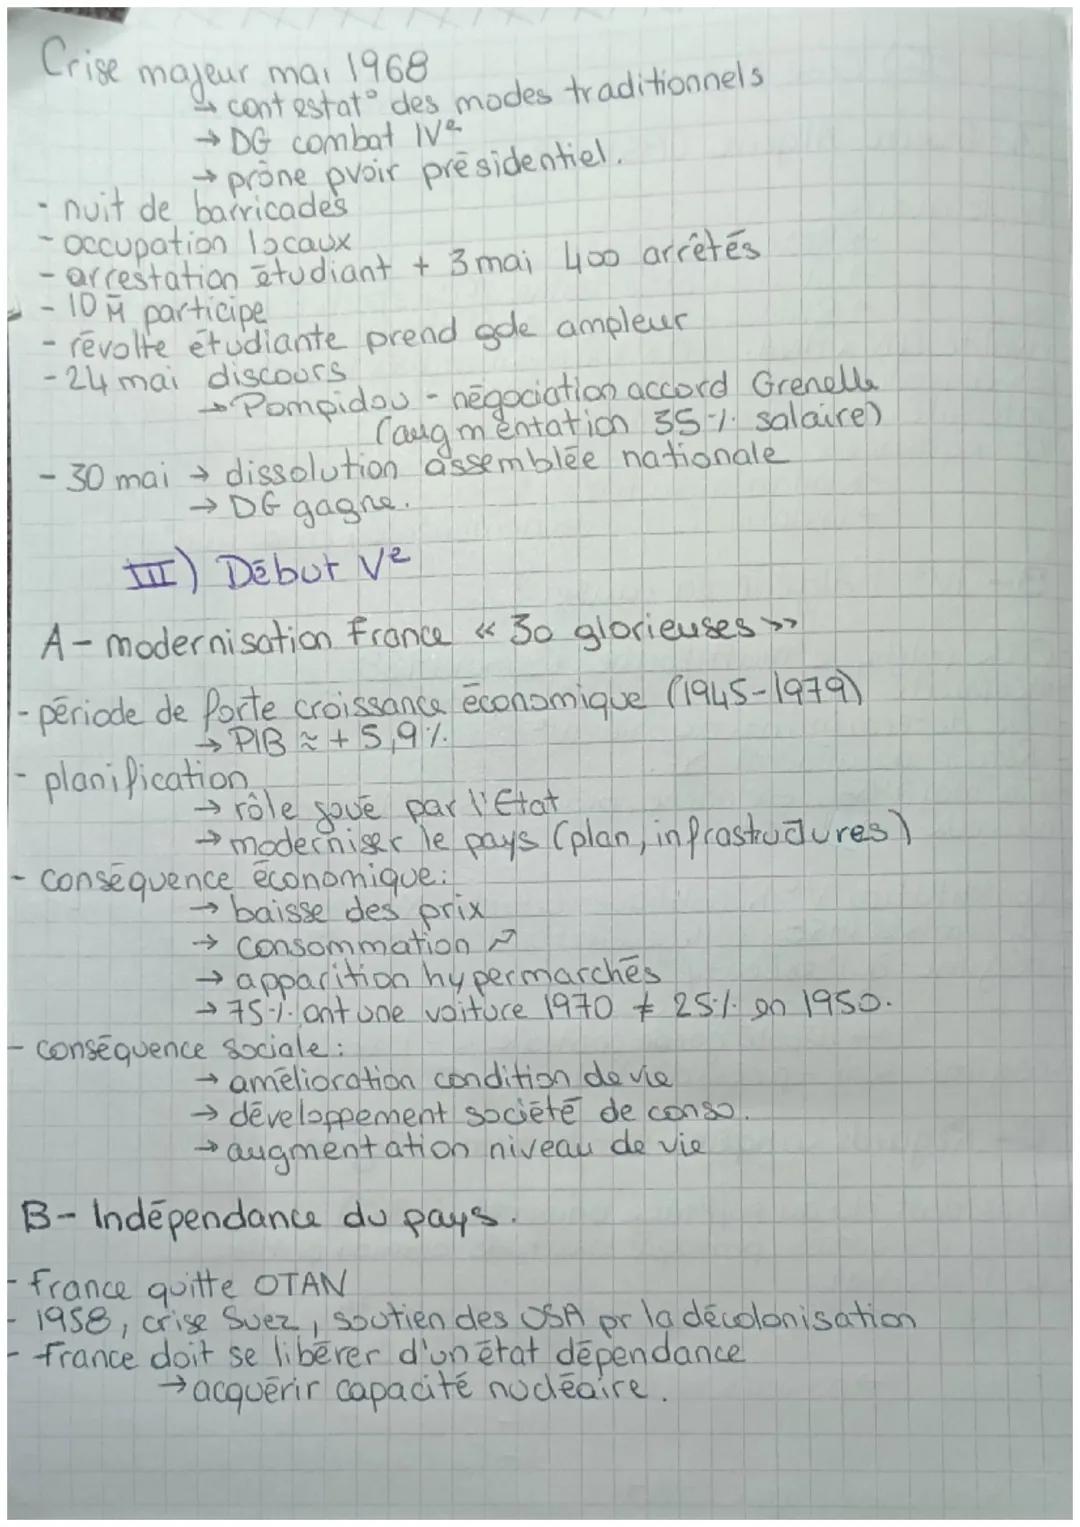 Crise majeur mai 1968
↳ contestat° des modes traditionnels
→ DG combat IVe
→ prône pvoir présidentiel.
- nuit de barricades
- occupation locaux
- arrestation étudiant + 3 mai 400 arrêtés
- 10 M participe
- révolte étudiante prend gde ampleur
- 24 mai discours
→ Pompidou - négociation accord Grenelle
(augmentation 35 % salaire)
- 30 mai → dissolution assemblée nationale
→ DG gagne.
III) Début Ve
A - modernisation France « 30 glorieuses »
- période de forte croissance économique (1945-1979)
→ PIB ≈ + 5,9 %.
- planification
→ rôle joué par l'Etat
→ moderniser le pays (plan, infrastuctures)
- conséquence économique :
→ baisse des prix
→ consommation ↗
→ apparition hypermarchés
→ 75 % ont une voiture 1970 ≠ 25 % en 1950.
- conséquence sociale :
→ amélioration condition de vie
→ développement société de conso.
→ augmentation niveau de vie
B - Indépendance du pays.
- France quitte OTAN
- 1958, crise Suez, soutien des USA pr la décolonisation
- France doit se libérer d'un état dépendance
→ acquérir capacité nucléaire.